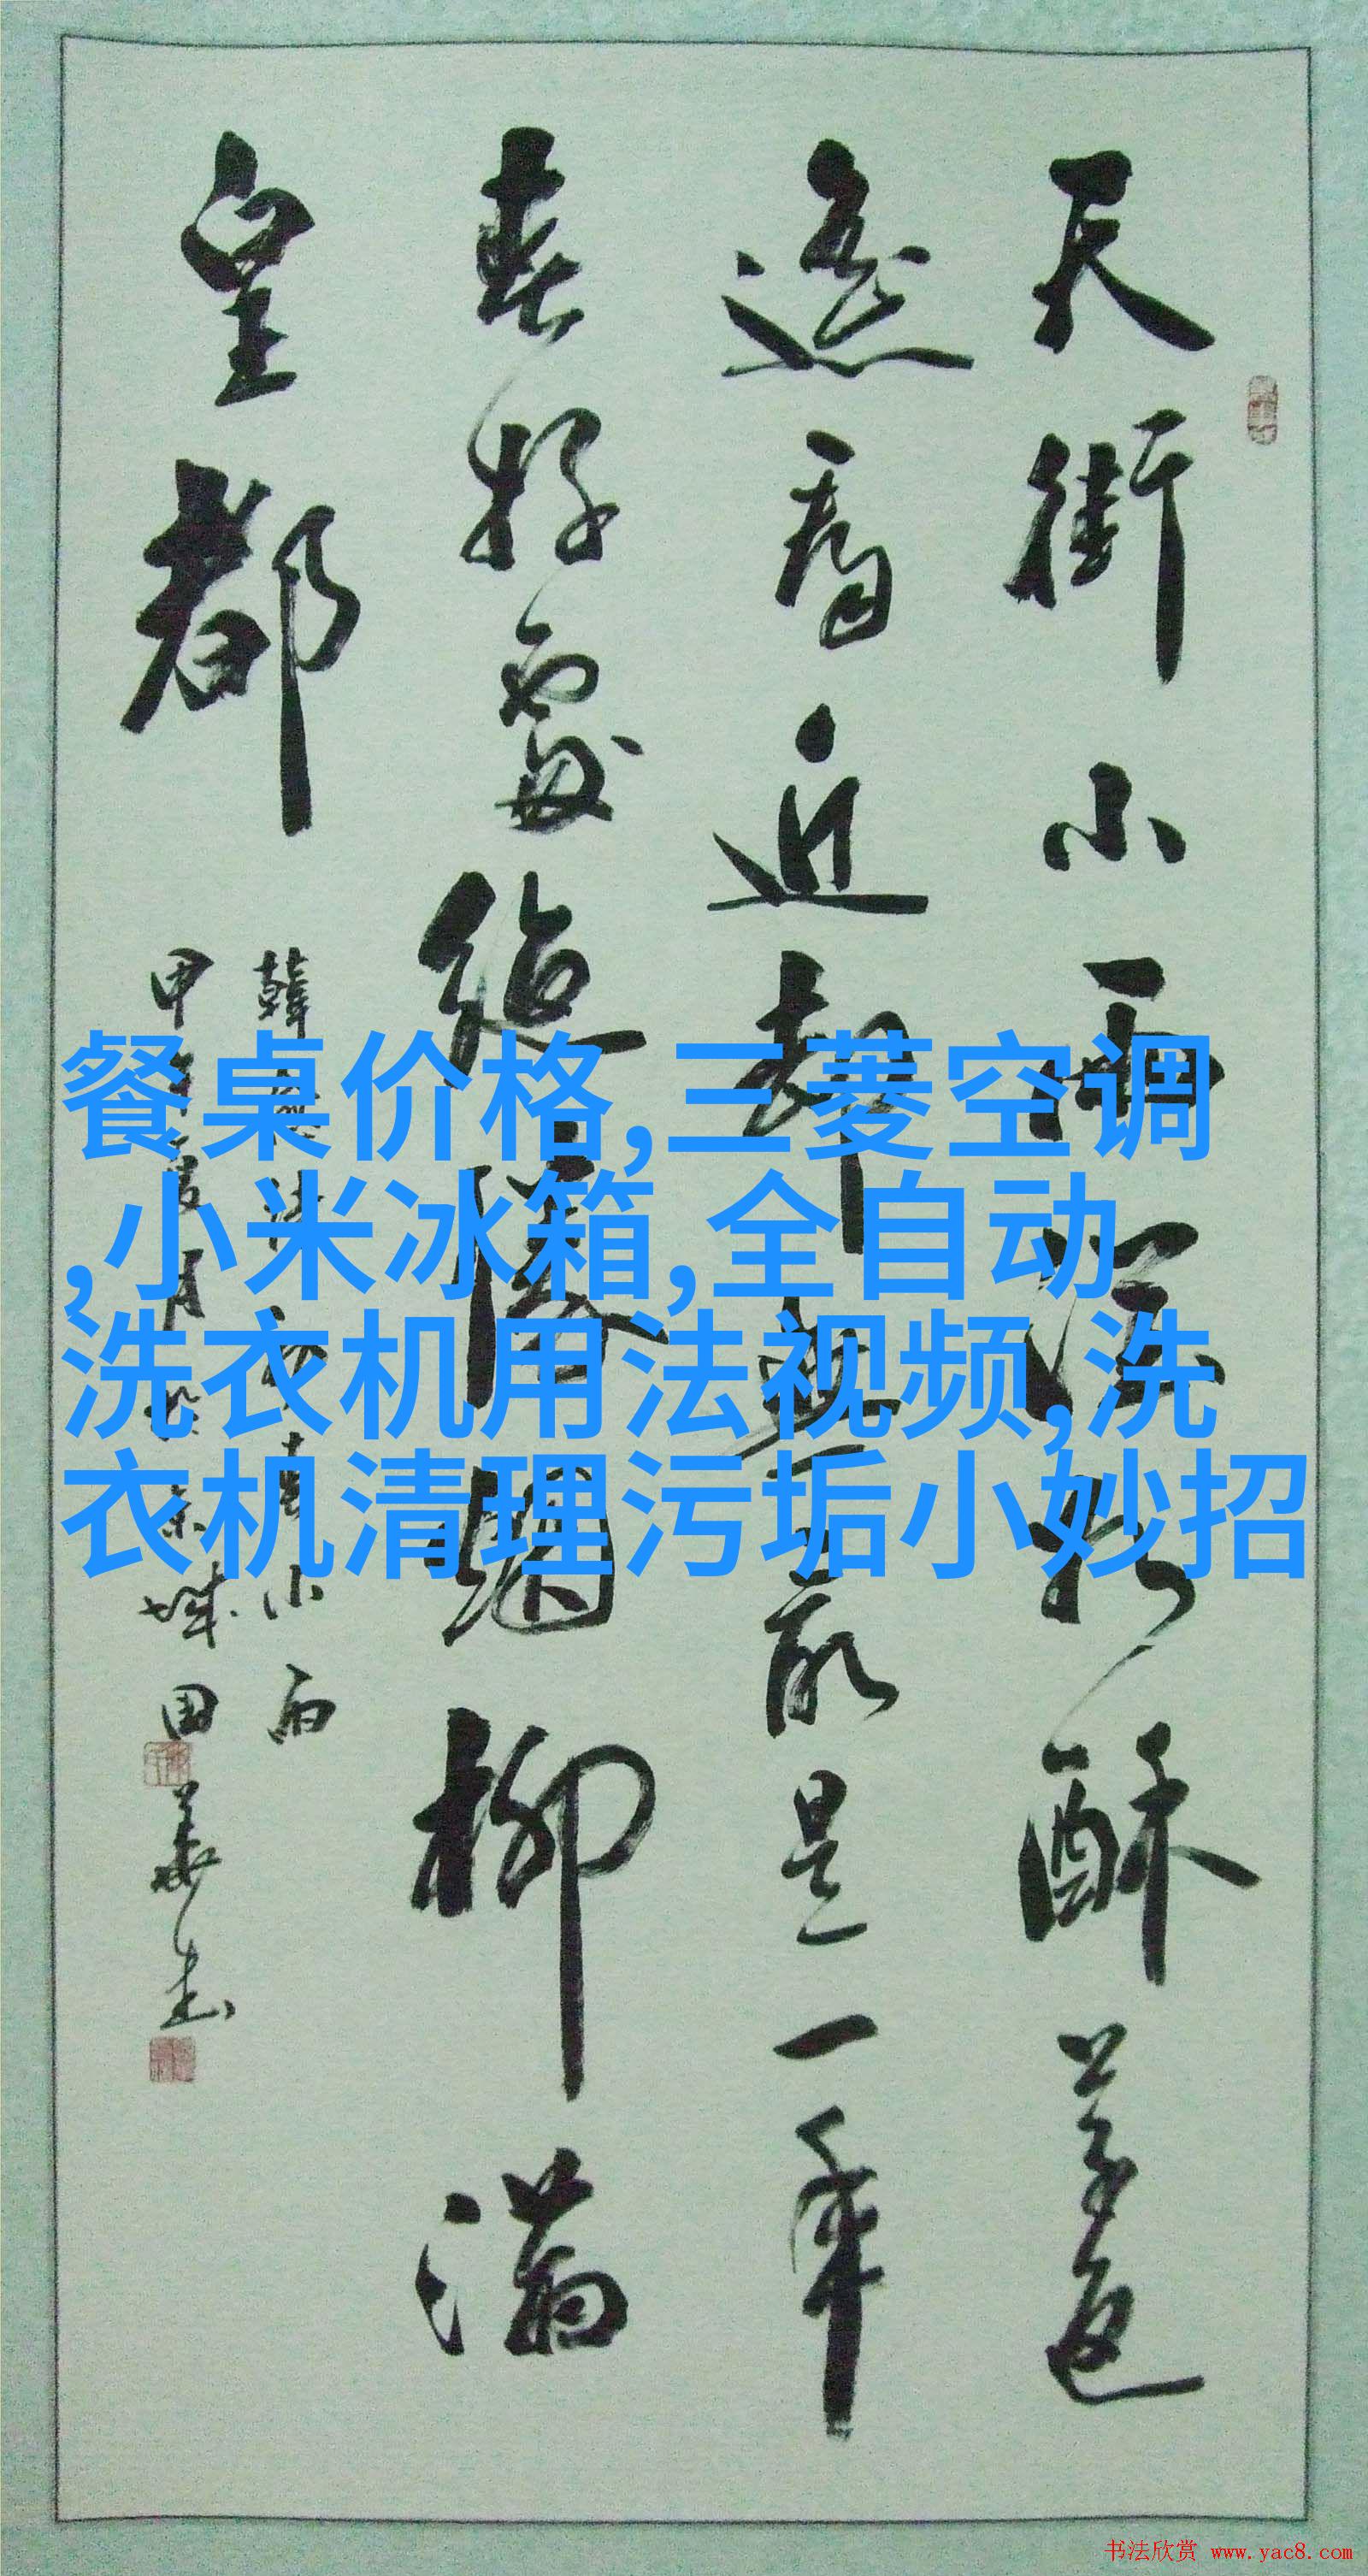 天街小雨润如酥草色
遥看近却无最是一年
春好处绝胜烟柳满
皇都
餐桌价格,三菱空调
,小米冰箱,全自动
洗衣机用法视频,洗
衣机清理污垢小妙招
书法欣赏 www.yac8.com